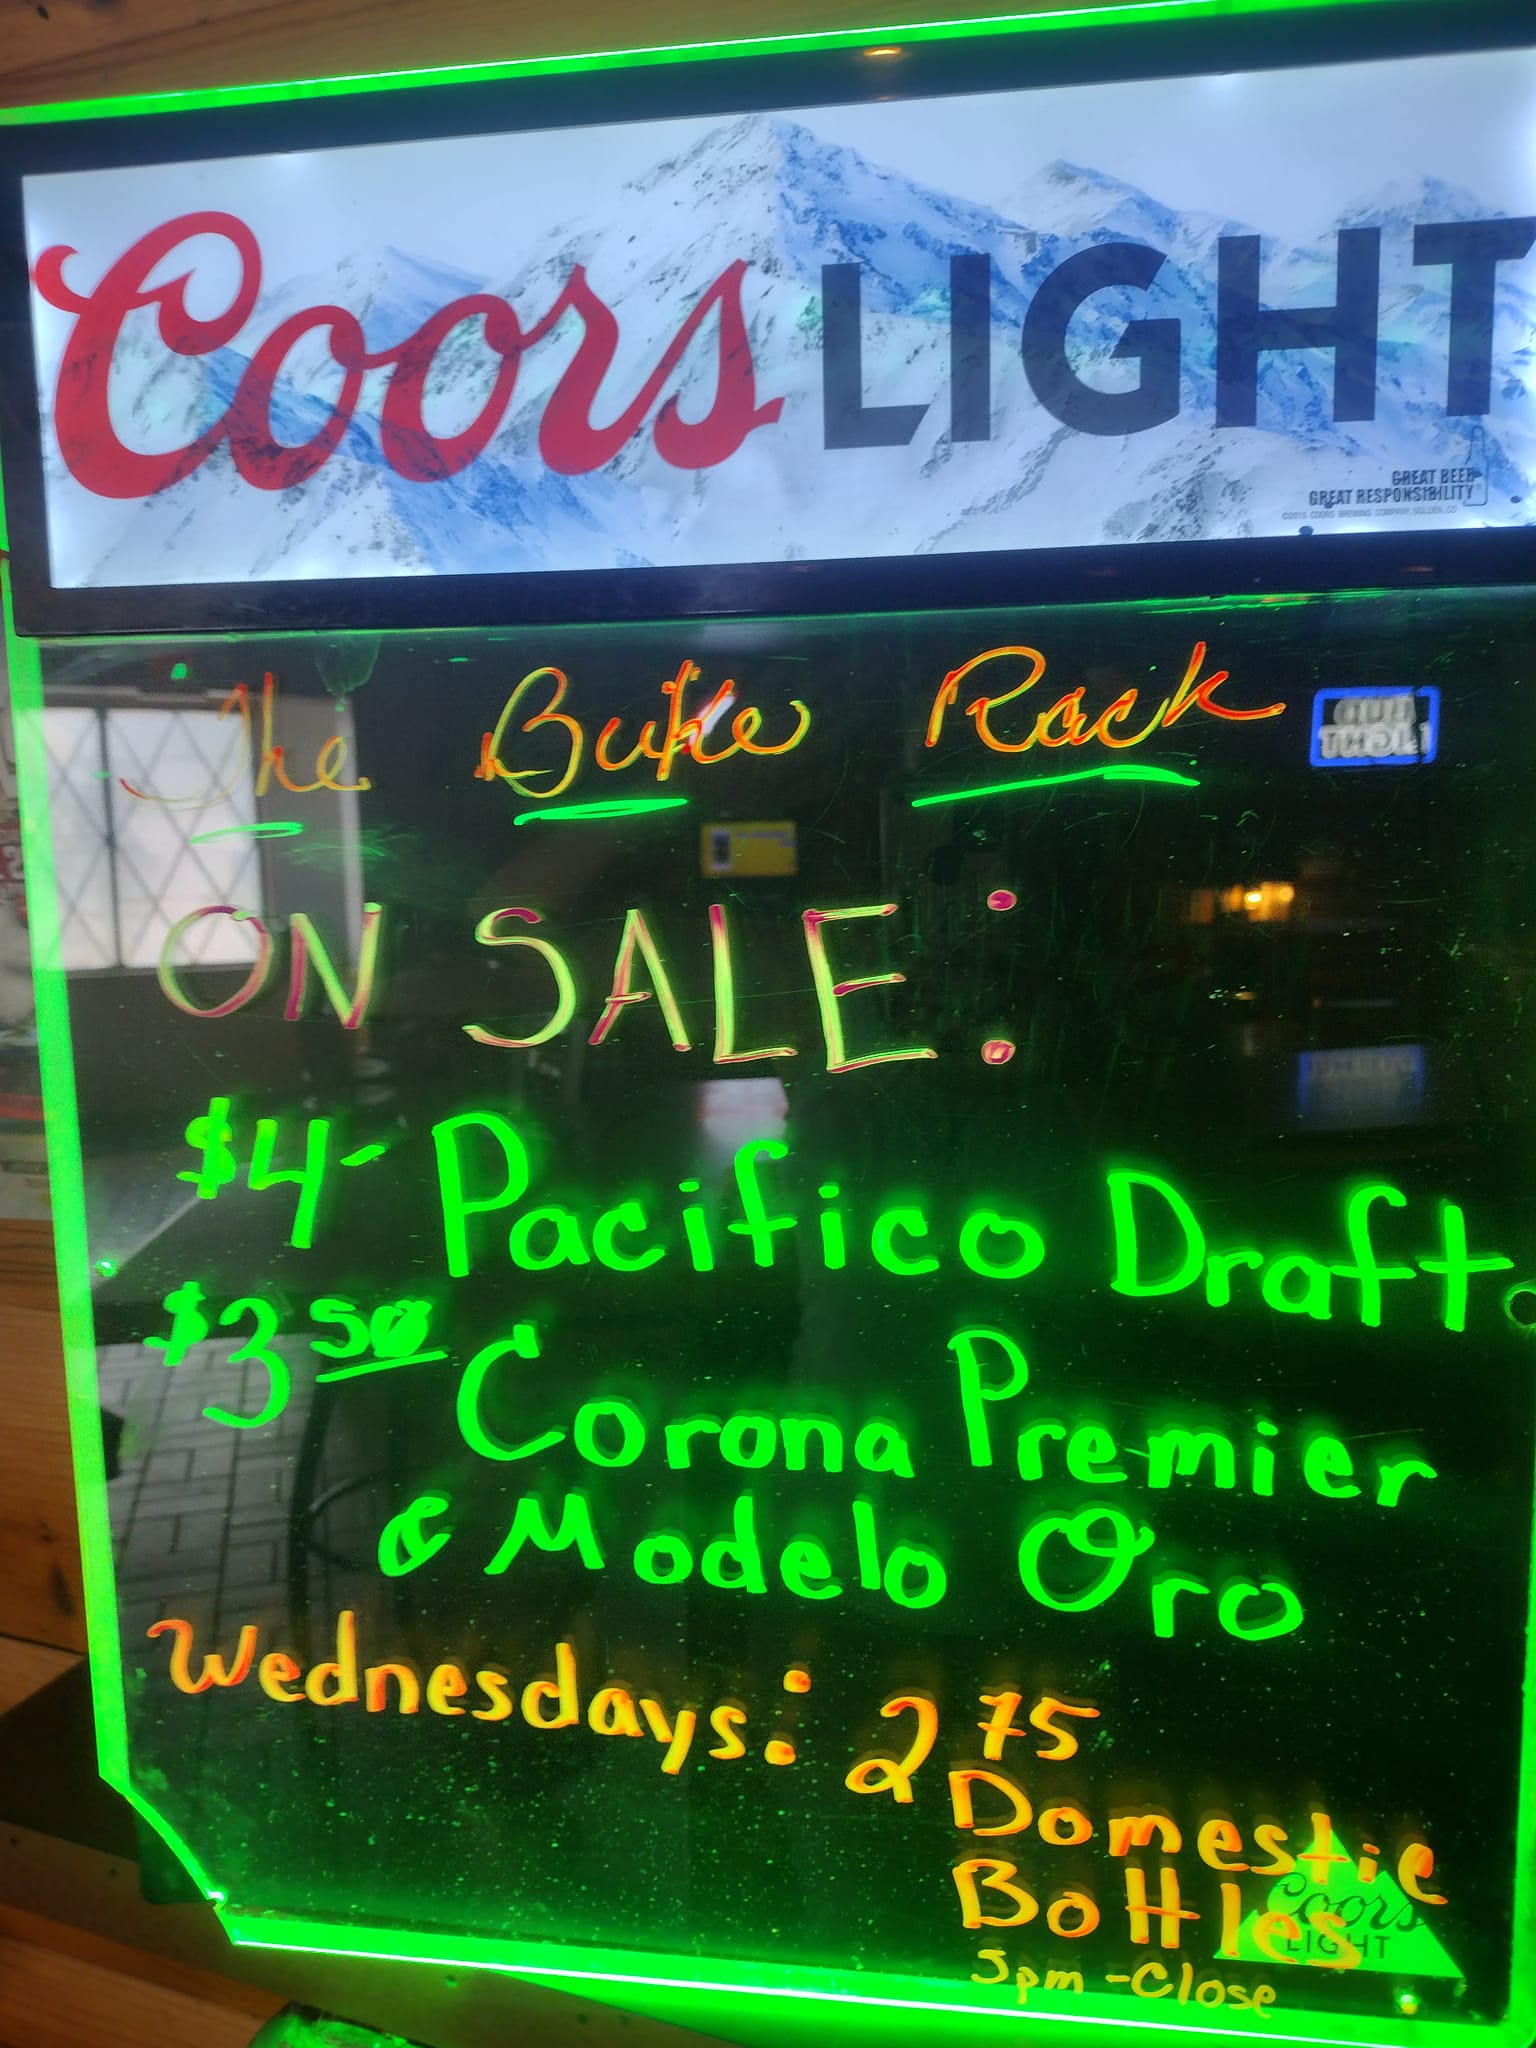 Coors LIGHT
GREAT BEER
GREAT RESPONSIBILITY
©2016 COORS BREWING COMPANY, GOLDEN, CO
The Buke Rack
ON SALE:
$4- Pacifico Draft.
$3 50 Corona Premier
& Modelo Oro
Wednesdays: 2 75
Domestic
Bottles
Coors
LIGHT
5pm - Close